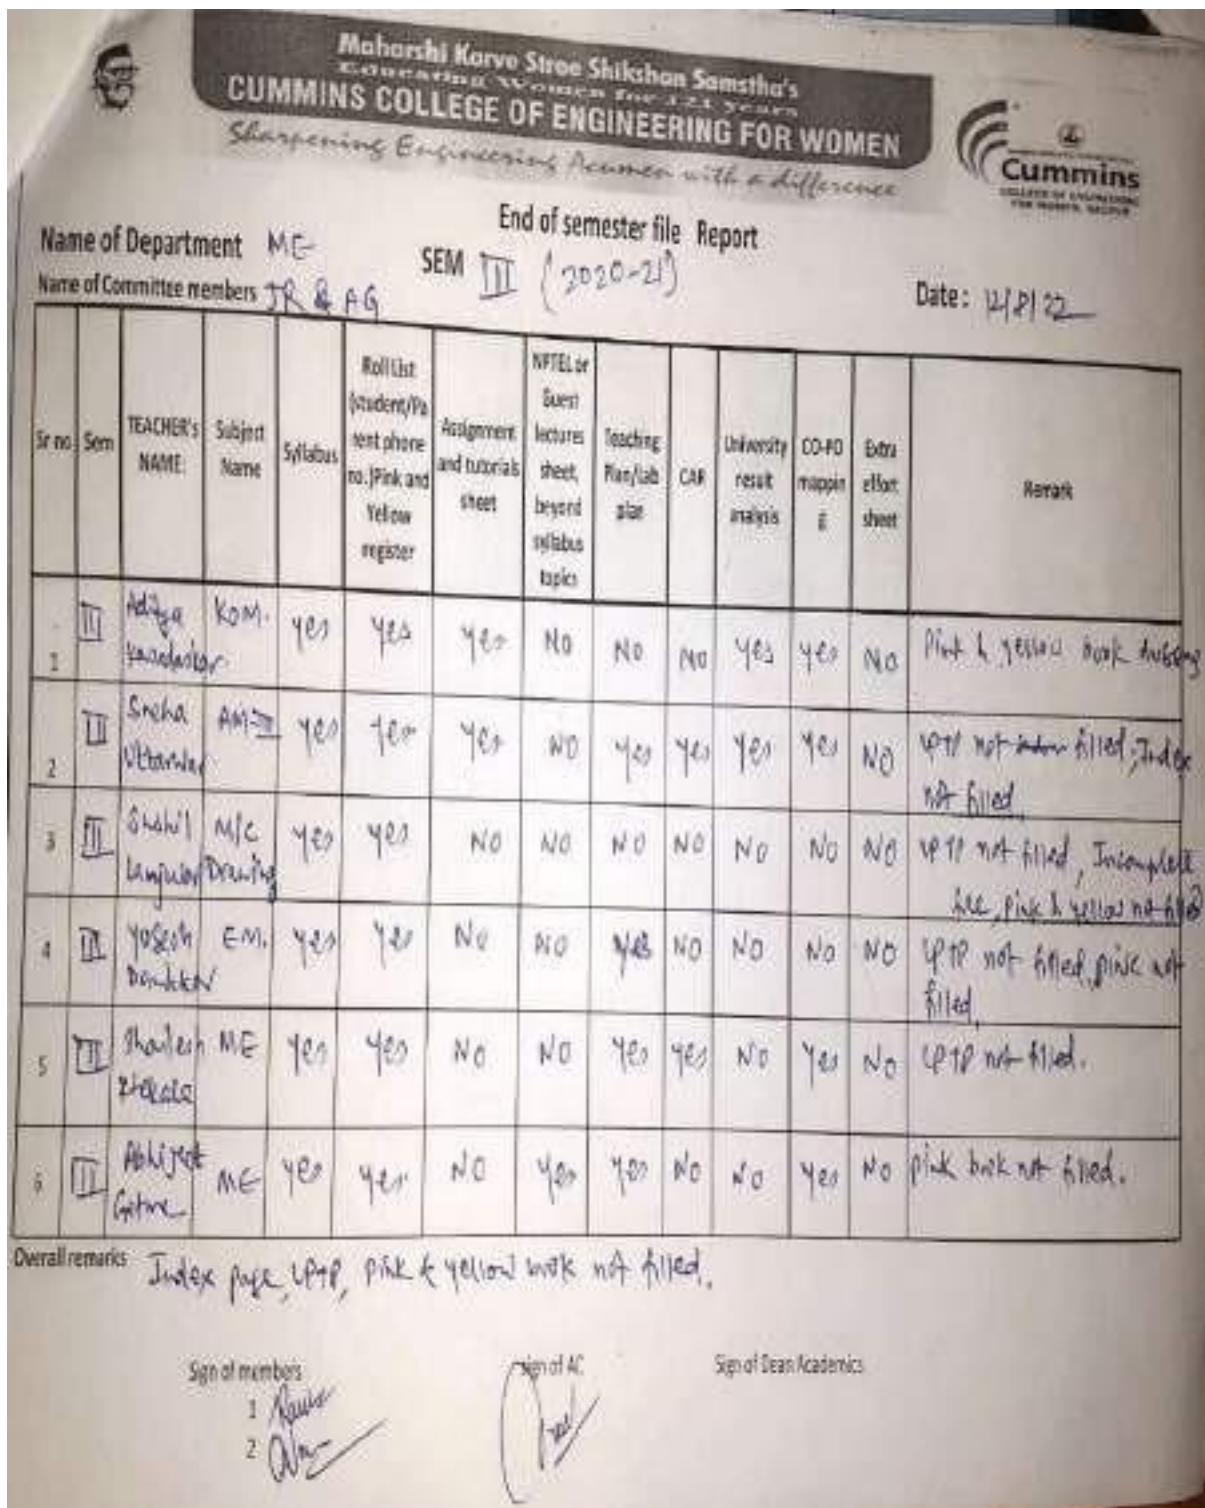 Maharshi Karve Stree Shikshan Samstha's
Educating Women for 121 years
CUMMINS COLLEGE OF ENGINEERING FOR WOMEN
Sharpening Engineering Acumen with a difference
Cummins
COLLEGE OF ENGINEERING
FOR WOMEN, NAGPUR
End of semester file Report
Name of Department ME
SEM III (2020-21)
Name of Committee members JR & AG
Date: 12/8/22
Sr no Sem TEACHER's NAME: Subject Name Syllabus Roll List (student/Parent phone no.)Pink and Yellow register Assignment and tutorials sheet NPTEL or Guest lectures sheet, beyond syllabus topics Teaching Plan/Lab plan CAR University result analysis CO-PO mapping Extra effort sheet Remark
1 III Aditya KOM. yes yes yes NO NO NO yes yes NO Pink & yellow book missing
2 III Sneha Uttarwar AM-III yes yes yes NO yes yes yes yes NO LPTP not filled, Index
not filled
3 III M/C Drawing yes yes NO NO NO NO NO NO NO LPTP not filled, Incomplete
pink & yellow not filled
4 III Yogesh EM. yes yes NO NO yes NO NO NO NO LPTP not filled, pink not
filled
5 III Shailesh ME yes yes NO NO yes yes NO yes NO LPTP not filled.
6 III Abhijeet ME yes yes NO yes yes NO NO yes NO pink book not filled.
Overall remarks Index page, LPTP, pink & yellow book not filled.
Sign of members
sign of AC
Sign of Dean Academics
1
2